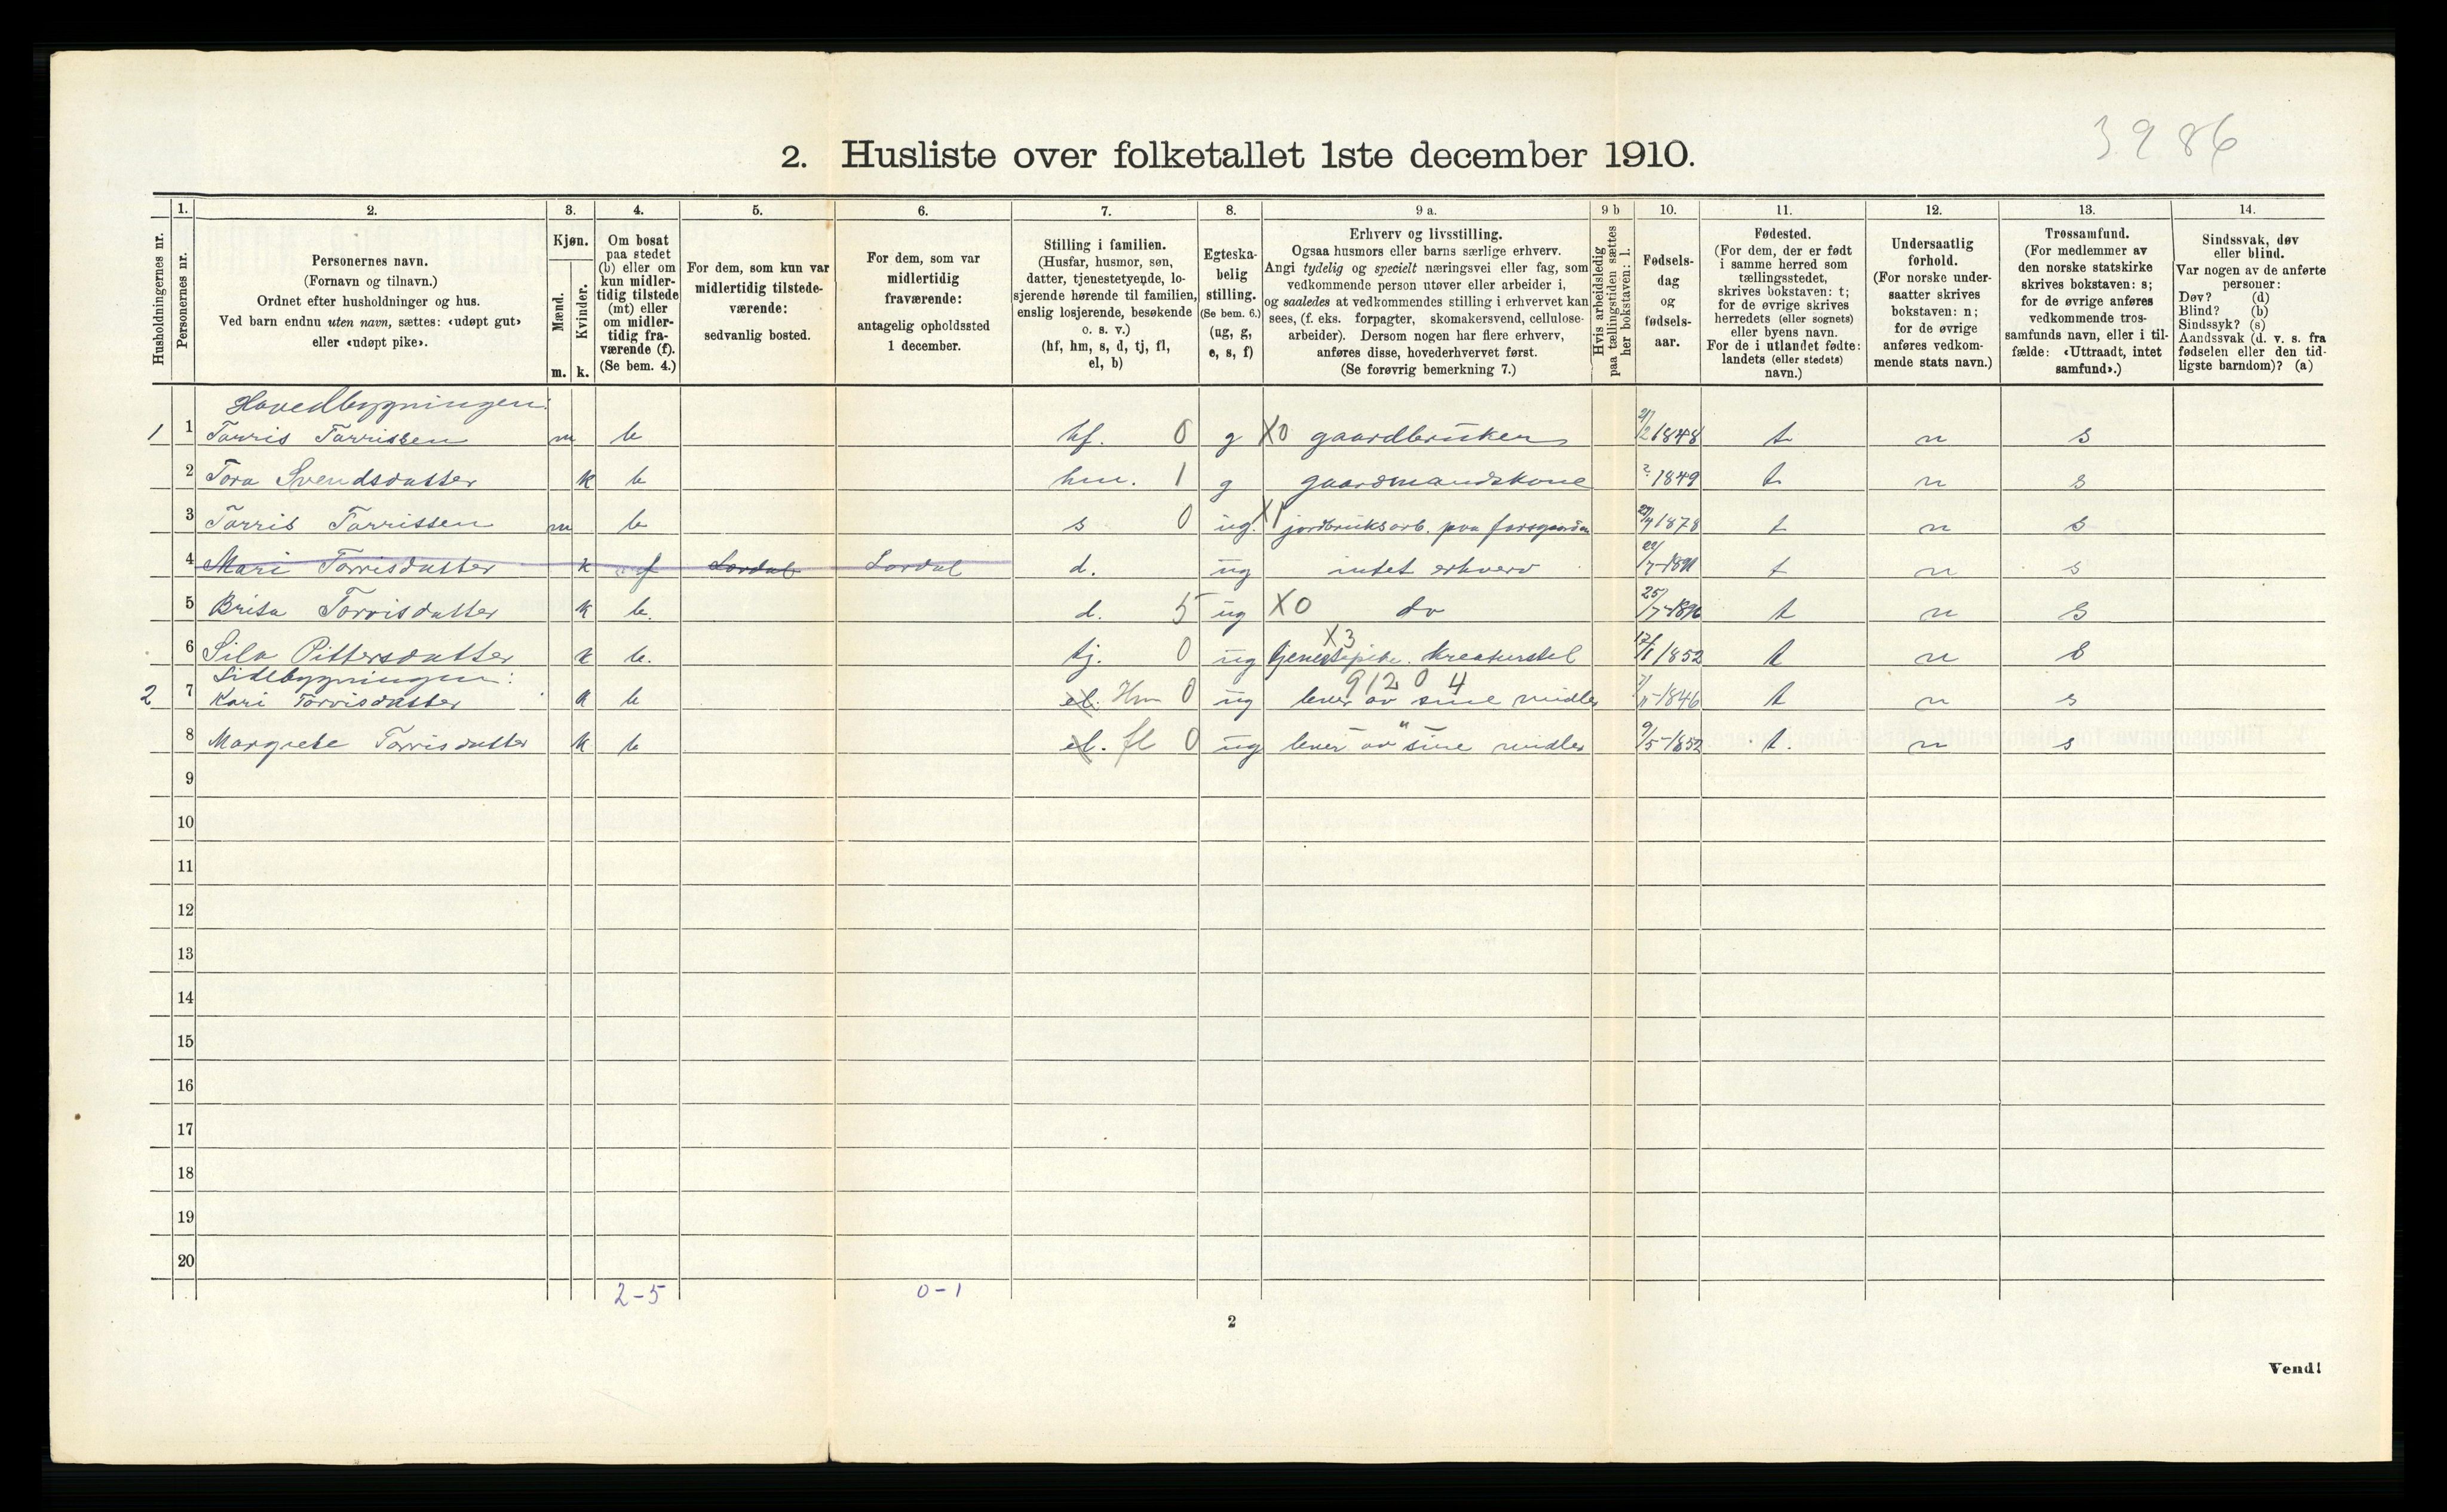 3986
2. Husliste over folketallet 1ste december 1910.
Husholdningernes nr.
1.
Personernes nr.
2.
Personernes navn.
(Fornavn og tilnavn.)
Ordnet efter husholdninger og hus.
Ved barn endnu uten navn, sættes: «udøpt gut»
eller «udøpt pike».
3.
Kjøn.
Mænd.
Kvinder.
m. k.
4.
Om bosat
paa stedet
(b) eller om
kun midler-
tidig tilstede
(mt) eller
om midler-
tidig fra-
værende (f).
(Se bem. 4.)
5.
For dem, som kun var
midlertidig tilstede-
værende:
sedvanlig bosted.
6.
For dem, som var
midlertidig
fraværende:
antagelig opholdssted
1 december.
7.
Stilling i familien.
(Husfar, husmor, søn,
datter, tjenestetyende, lo-
sjerende hørende til familien,
enslig losjerende, besøkende
o. s. v.)
(hf, hm, s, d, tj, fl,
el, b)
8.
Egteska-
belig
stilling.
(Se bem. 6.)
(ug, g,
e, s, f)
9 a.
Erhverv og livsstilling.
Ogsaa husmors eller barns særlige erhverv.
Angi tydelig og specielt næringsvei eller fag, som
vedkommende person utøver eller arbeider i,
og saaledes at vedkommendes stilling i erhvervet kan
sees, (f. eks. forpagter, skomakersvend, cellulose-
arbeider). Dersom nogen har flere erhverv,
anføres disse, hovederhvervet først.
(Se forøvrig bemerkning 7.)
9 b
Hvis arbeidsledig
paa tællingstiden sættes
her bokstaven: l.
10.
Fødsels-
dag
og
fødsels-
aar.
11.
Fødested.
(For dem, der er født
i samme herred som
tællingsstedet,
skrives bokstaven: t;
for de øvrige skrives
herredets (eller sognets)
eller byens navn.
For de i utlandet fødte:
landets (eller stedets)
navn.)
12.
Undersaatlig
forhold.
(For norske under-
saatter skrives
bokstaven: n;
for de øvrige
anføres vedkom-
mende stats navn.)
13.
Trossamfund.
(For medlemmer av
den norske statskirke
skrives bokstaven: s;
for de øvrige anføres
vedkommende tros-
samfunds navn, eller i til-
fælde: «Uttraadt, intet
samfund».)
14.
Sindssvak, døv
eller blind.
Var nogen av de anførte
personer:
Døv? (d)
Blind? (b)
Sindssyk? (s)
Aandssvak (d. v. s. fra
fødselen eller den tid-
ligste barndom)? (a)
Hovedbygningen:
1 1 Torris Torrissen m b hf. 0 g X0 gaardbruker 1848 t n s
2 Tora Svendsdatter k b hm. 1 g gaardmandskone ? 1849 t n s
3 Torris Torrissen m b s 0 ug. X1 jordbruksarb. paa farsgaarden 1878 t n s
4 Mari Torrisdatter k f Lordal Lordal d. ug intet erhverv t n s
5 Brita Torrisdatter k b. d. 5 ug X0 do 25/7 1896 t n s
6 Sila Pittersdatter k b. tj. 0 ug X3 tjenestepike. kreaturstel 1852 t n s
Sidebygningen:
2 7 Kari Torrisdatter k b el. Hm 0 ug 912 0 4 lever av sine midler 1846 t n s
8 Margrete Torrisdatter k b el. fl 0 ug lever av " sine midler 9/5-1852 t. n s
9
10
11
12
13
14
15
16
17
18
19
20
2-5 0-1
2
Vend!